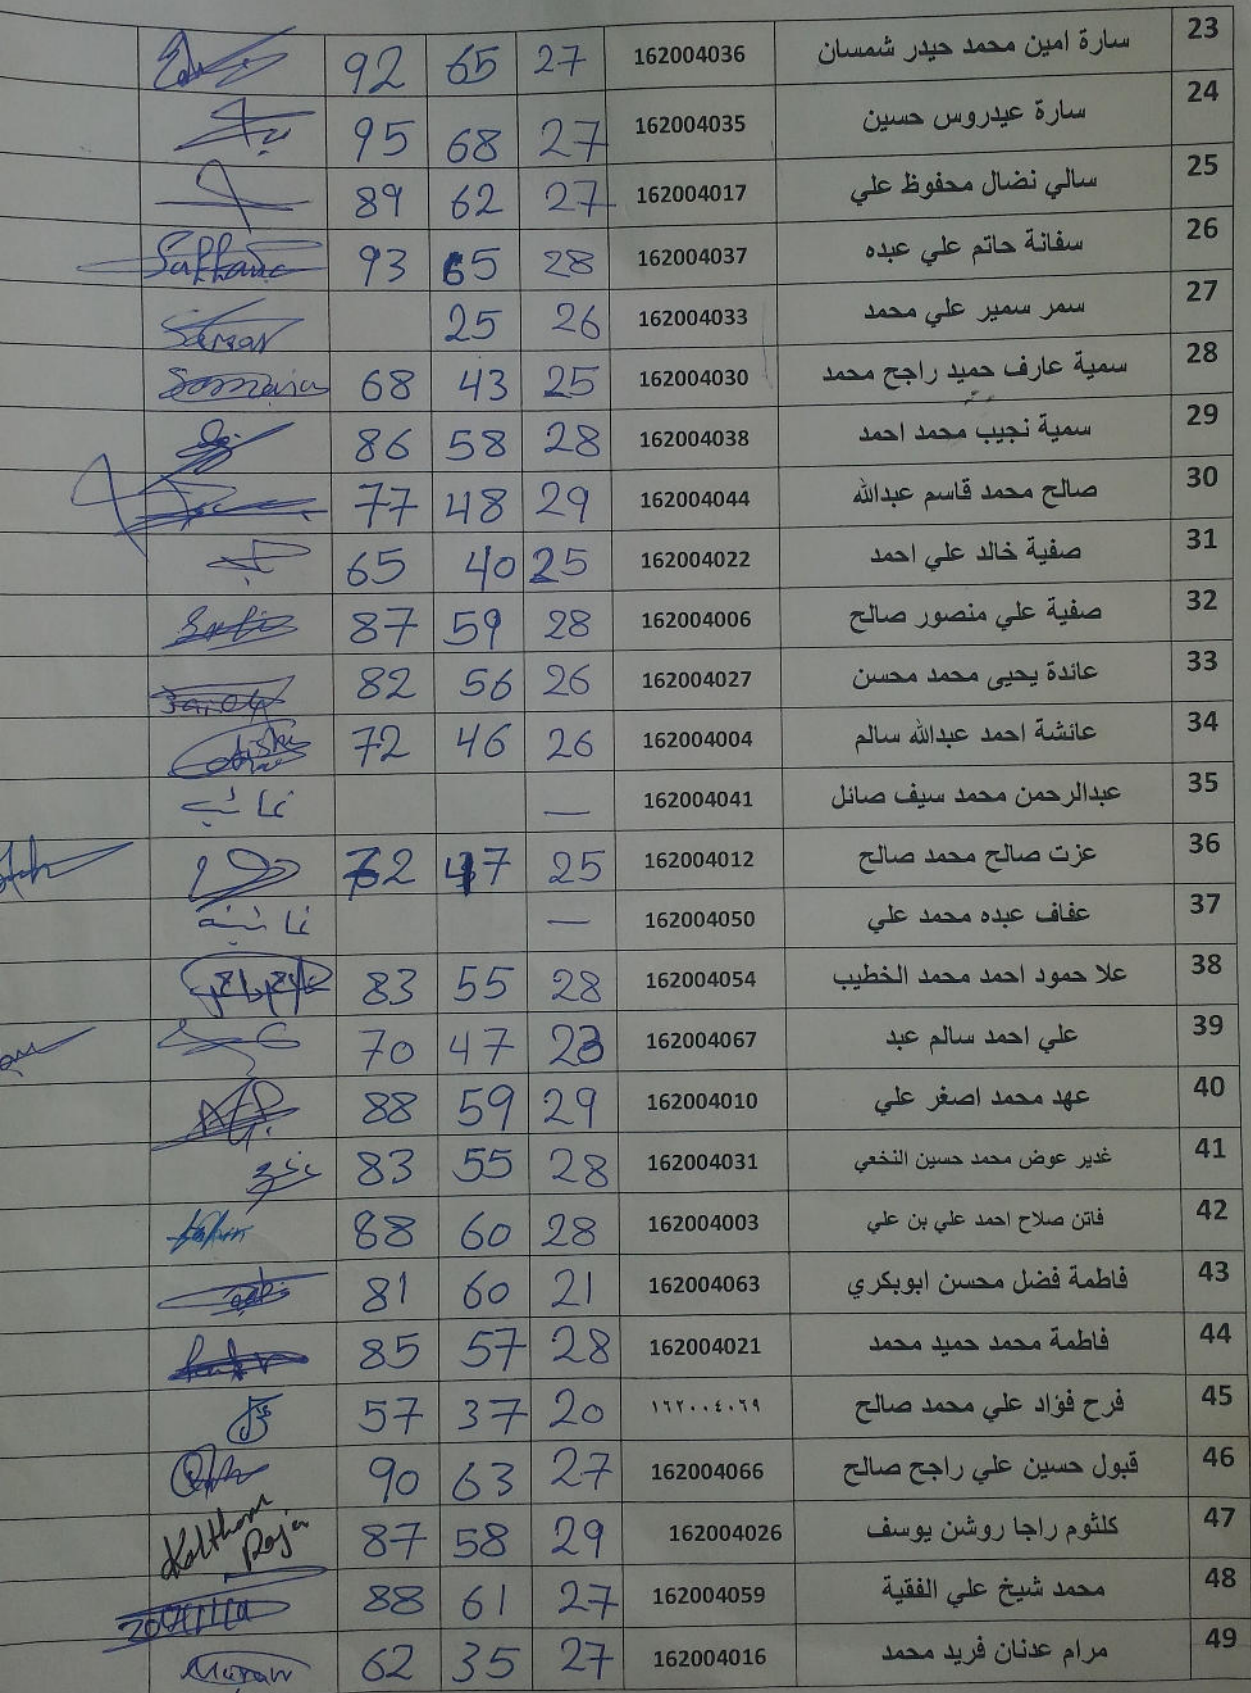 23 سارة امين محمد حيدر شمسان 162004036 27 65 92
24 سارة عيدروس حسين 162004035 27 68 95
25 سالي نضال محفوظ علي 162004017 27 62 89
26 سفانة حاتم علي عبده 162004037 28 65 93 Saffana
27 سمر سمير علي محمد 162004033 26 25 Samar
28 سمية عارف حميد راجح محمد 162004030 25 43 68
29 سمية نجيب محمد احمد 162004038 28 58 86
30 صالح محمد قاسم عبدالله 162004044 29 48 77
31 صفية خالد علي احمد 162004022 25 40 65
32 صفية علي منصور صالح 162004006 28 59 87
33 عائدة يحيى محمد محسن 162004027 26 56 82
34 عائشة احمد عبدالله سالم 162004004 26 46 72
35 عبدالرحمن محمد سيف صائل 162004041 — غائب
36 عزت صالح محمد صالح 162004012 25 47 72
37 عفاف عبده محمد علي 162004050 — غائبة
38 علا حمود احمد محمد الخطيب 162004054 28 55 83
39 علي احمد سالم عبد 162004067 23 47 70
40 عهد محمد اصغر علي 162004010 29 59 88
41 غدير عوض محمد حسين النخعي 162004031 28 55 83
42 فاتن صلاح احمد علي بن علي 162004003 28 60 88
43 فاطمة فضل محسن ابوبكري 162004063 21 60 81
44 فاطمة محمد حميد محمد 162004021 28 57 85
45 فرح فؤاد علي محمد صالح ١٦٢٠٠٤٠٦٩ 20 37 57
46 قبول حسين علي راجح صالح 162004066 27 63 90
47 كلثوم راجا روشن يوسف 162004026 29 58 87 Kolthom Raja
48 محمد شيخ علي الفقية 162004059 27 61 88
49 مرام عدنان فريد محمد 162004016 27 35 62 Maram